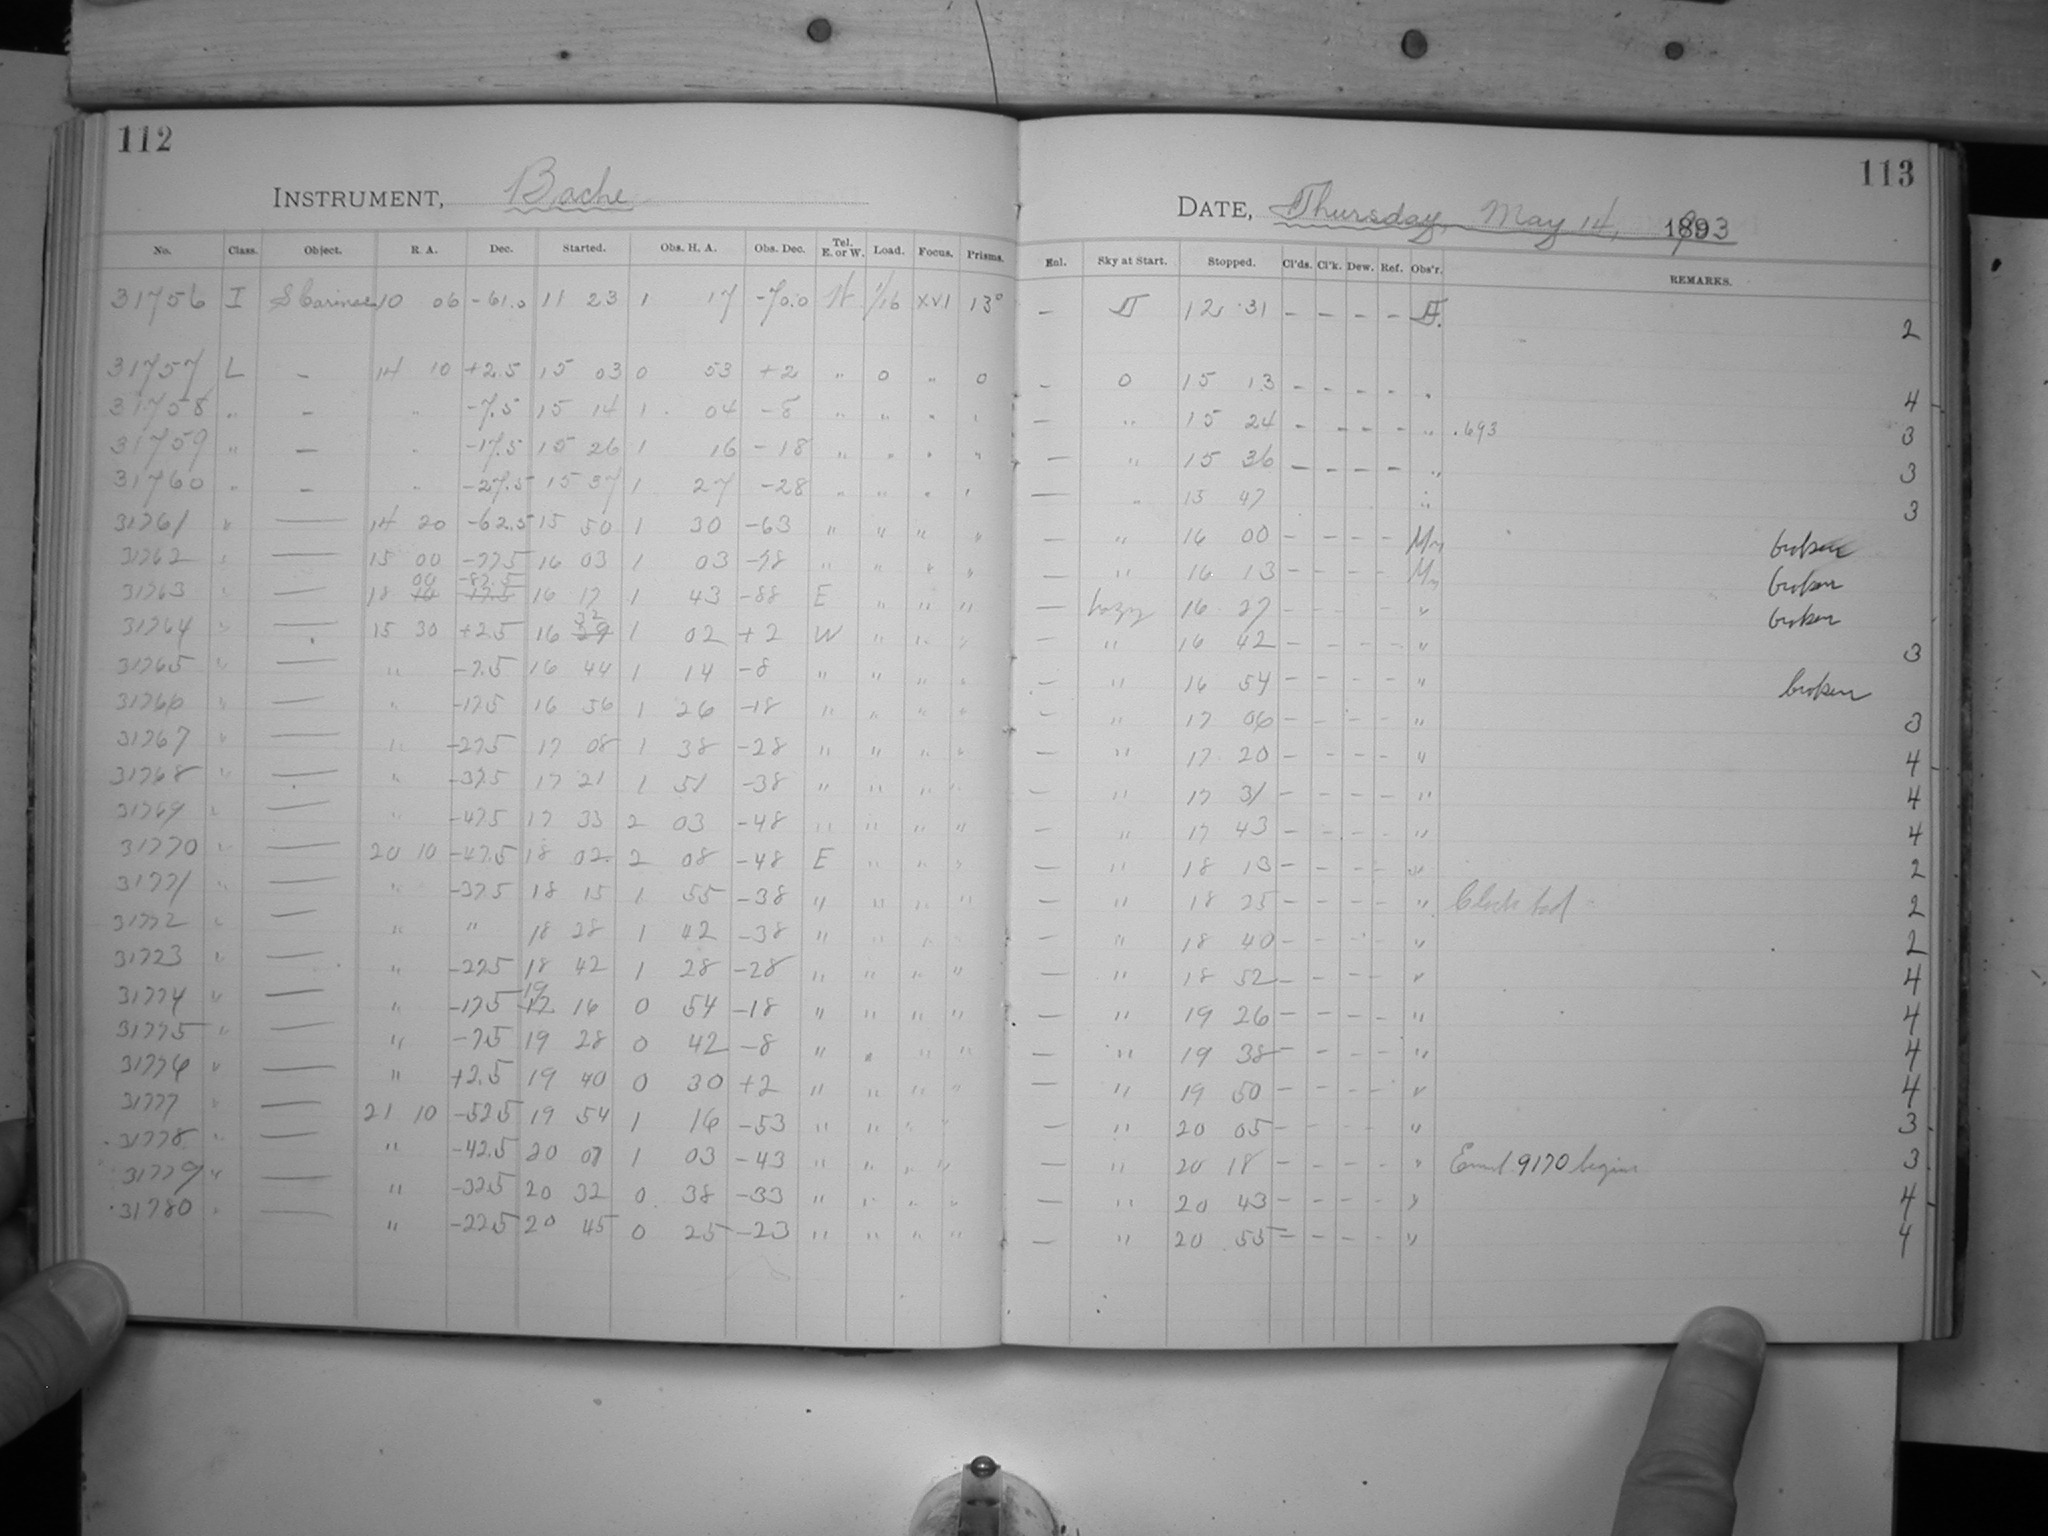 112
INSTRUMENT, Bache
No. Class. Object. R. A. Dec. Started. Obs. H. A. Obs. Dec. Tel. E. or W. Load. Focus. Prisms.
31756 I S Carinae 10 06 -61.0 11 23 1 17 -70.0 W 1/16 XVI 13°
31757 L - 14 10 +2.5 15 03 0 53 +2 " 0 " 0
31758 " - " -7.5 15 14 1 04 -8 " " " "
31759 " - " -17.5 15 26 1 16 -18 " " " "
31760 " - " -27.5 15 37 1 27 -28 " " " "
31761 " — 14 20 -62.5 15 50 1 30 -63 " " " "
31762 " — 15 00 -775 16 03 1 03 -78 " " " "
31763 " — 18 00 -87.5 16 17 1 43 -88 E " " "
31764 " — 15 30 +2.5 16 32 1 02 +2 W " " "
31765 " — " -7.5 16 44 1 14 -8 " " " "
31766 " — " -175 16 56 1 26 -18 " " " "
31767 " — " -275 17 08 1 38 -28 " " " "
31768 " — " -375 17 21 1 51 -38 " " " "
31769 " — " -475 17 33 2 03 -48 " " " "
31770 " — 20 10 -47.5 18 02 2 08 -48 E " " "
31771 " — " -375 18 15 1 55 -38 " " " "
31772 " — " " 18 28 1 42 -38 " " " "
31773 " — " -275 18 42 1 28 -28 " " " "
31774 " — " -175 19 16 0 54 -18 " " " "
31775 " — " -75 19 28 0 42 -8 " " " "
31776 " — " +2.5 19 40 0 30 +2 " " " "
31777 " — 21 10 -525 19 54 1 16 -53 " " " "
31778 " — " -42.5 20 07 1 03 -43 " " " "
31779 " — " -325 20 32 0 38 -33 " " " "
31780 " — " -225 20 45 0 25 -23 " " " "
113
DATE, Thursday, May 14, 1893
Enl. Sky at Start. Stopped. Cl'ds. Cl'k. Dew. Ref. Obs'r. REMARKS.
- 12 31 - - - - 2
- 0 15 13 - - - - " 4
- " 15 24 - - - - " .693 3
- " 15 36 - - - - " 3
- " 15 47 " 3
- " 16 00 - - - - broken
- " 16 13 - - - - broken
- hazy 16 27 - - - - " broken
- " 16 42 - - - - " 3
- " 16 54 - - - - " broken
- " 17 06 - - - - " 3
- " 17 20 - - - - " 4
- " 17 31 - - - - " 4
- " 17 43 - - - - " 4
- " 18 13 - - - - " 2
- " 18 25 - - - - " Clock bad 2
- " 18 40 - - - - " 2
- " 18 52 - - - - " 4
- " 19 26 - - - - " 4
- " 19 38 - - - - " 4
- " 19 50 - - - - " 4
- " 20 05 - - - - " 3
- " 20 18 - - - - " Emul. 9170 begins 3
- " 20 43 - - - - " 4
- " 20 55 - - - - " 4